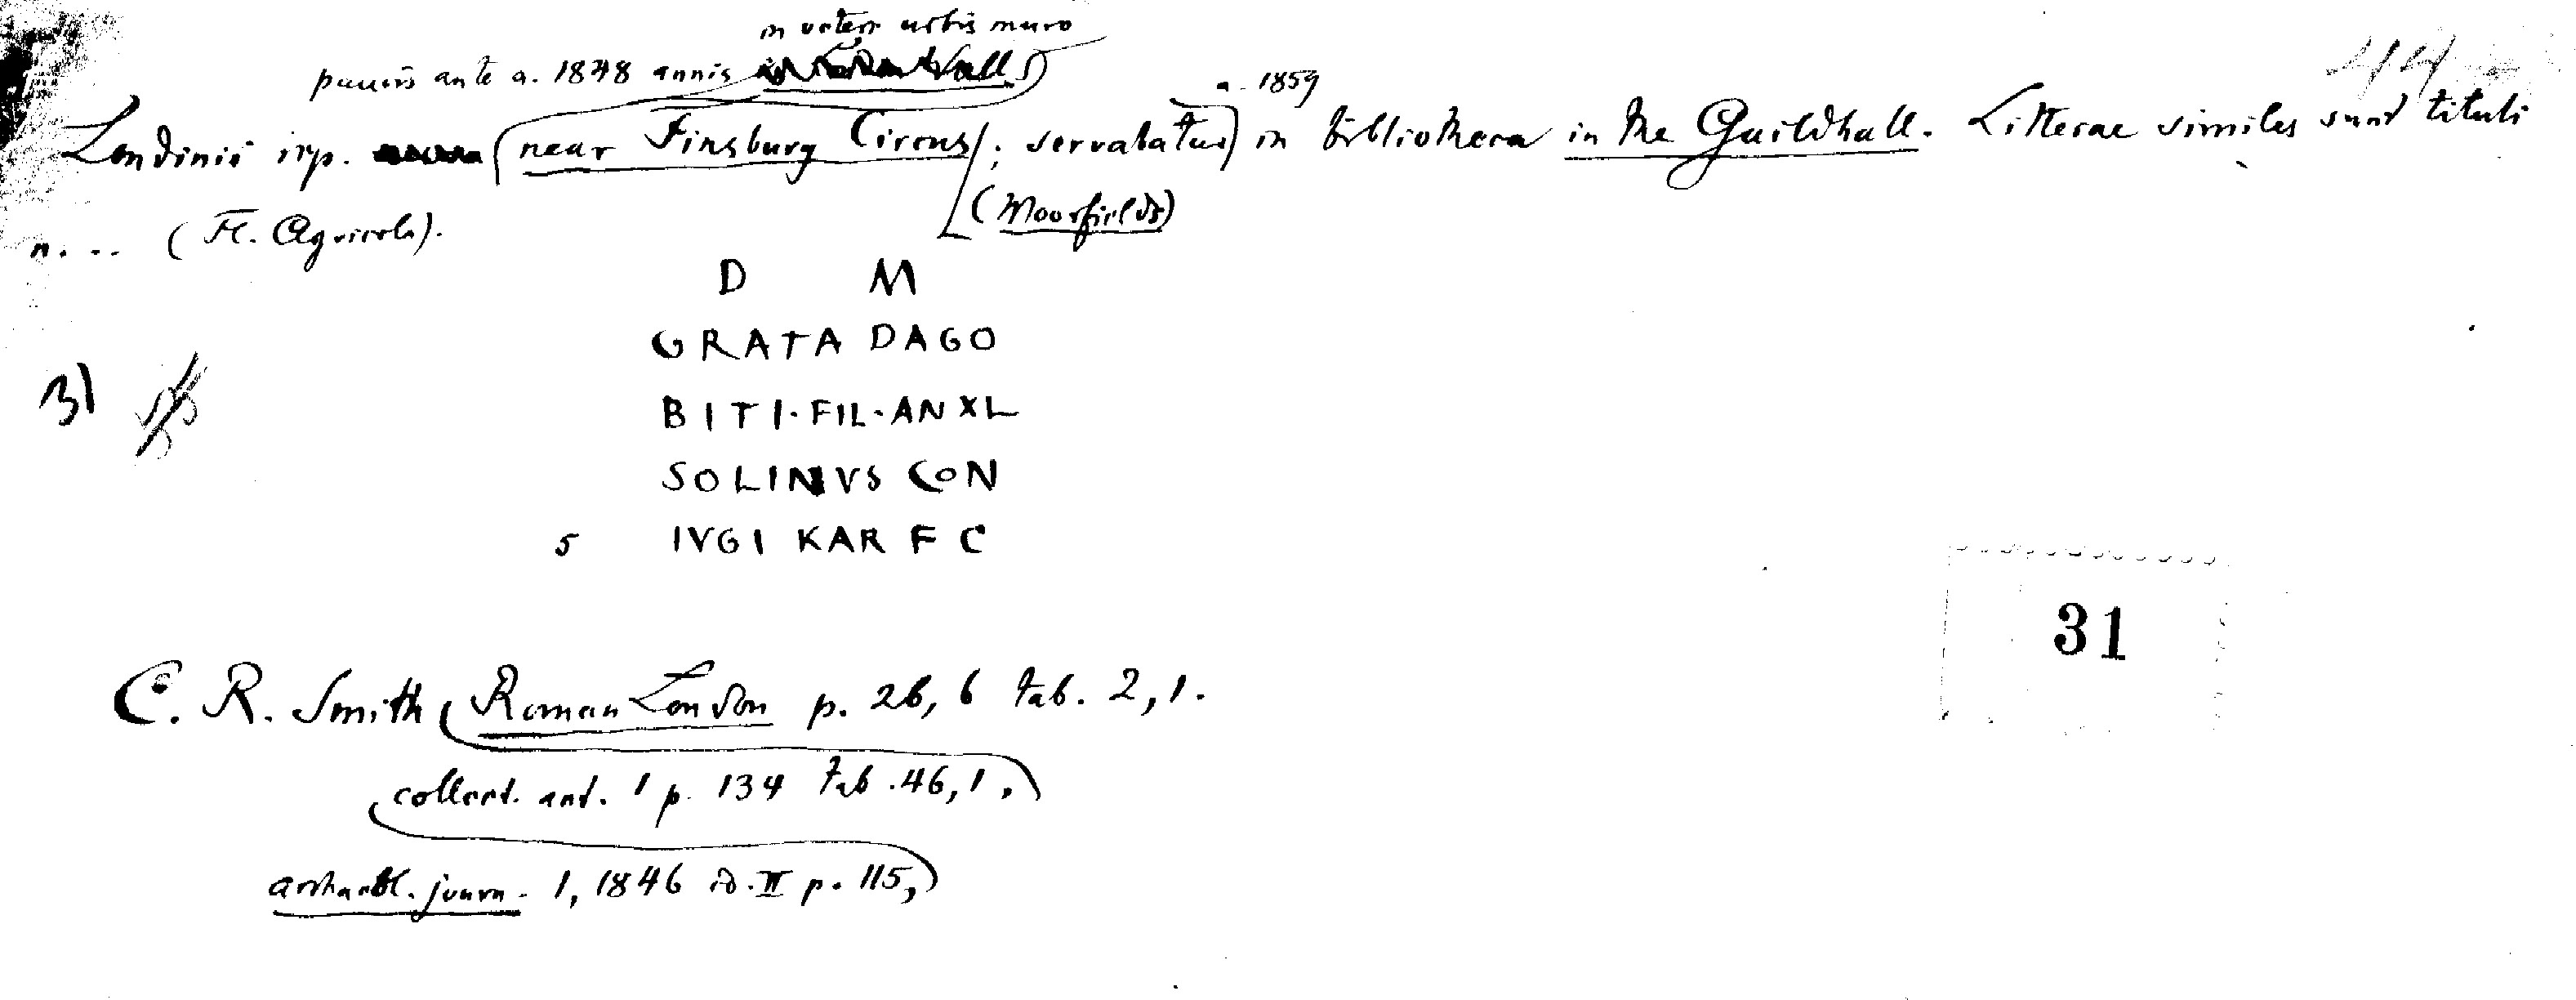 in veteri urbis muro
paucis ante a. 1848 annis
a. 1859
Londinii rep. (near Finsbury Circus; servabatur) in bibliotheca in the Guildhall. Litterae similes sunt tituli
(Moorfields)
n. . . . (Fl. Agricola).
D M
GRATA DAGO
3)
BITI·FIL·AN XL
SOLINVS CON
5 IVGI KAR F C
31
C. R. Smith Roman London p. 26, 6 tab. 2, 1.
collect. ant. 1 p. 134 tab. 46, 1.
archaeol. journ. 1, 1846 p. 115,